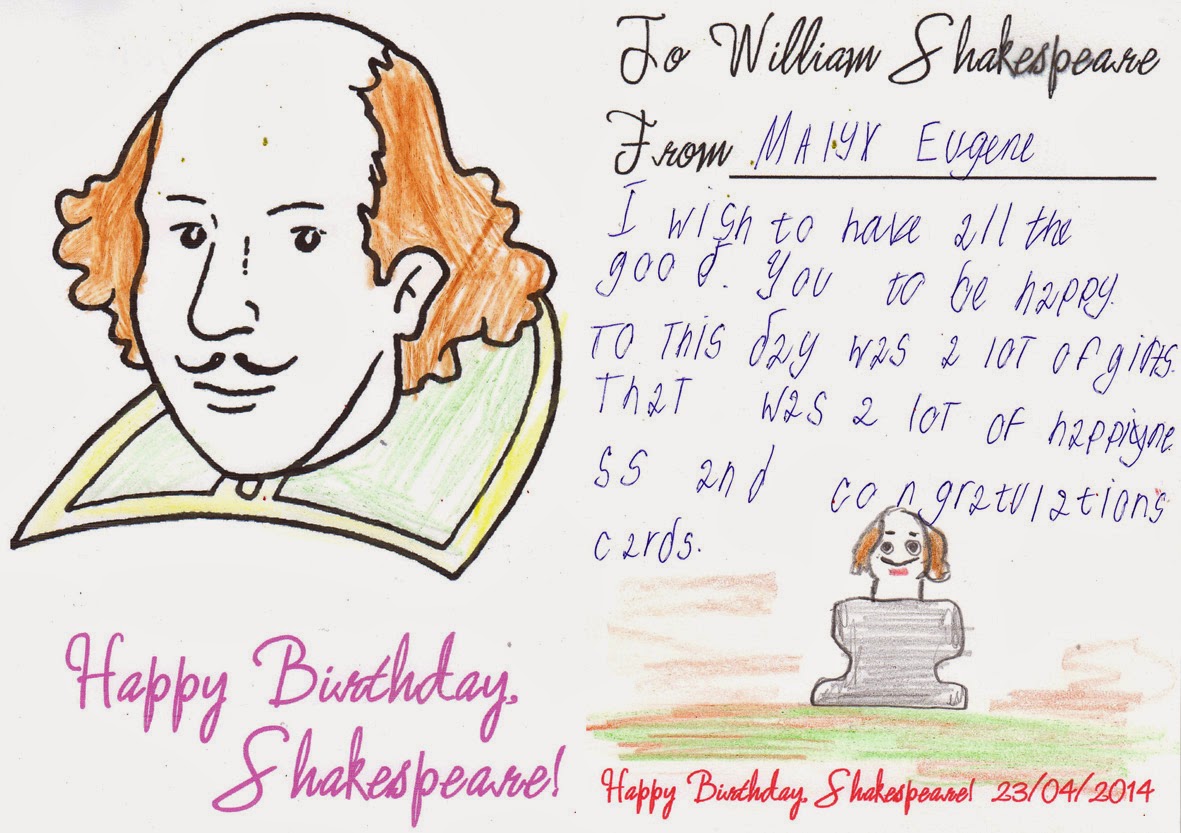 Happy Birthday,
Shakespeare!
To William Shakespeare
From Malyx Eugene
I wish to have all the
good. You to be happy.
To this day was a lot of gifts.
That was a lot of happiyne
ss and congratulations
cards.
Happy Birthday, Shakespeare! 23/04/2014